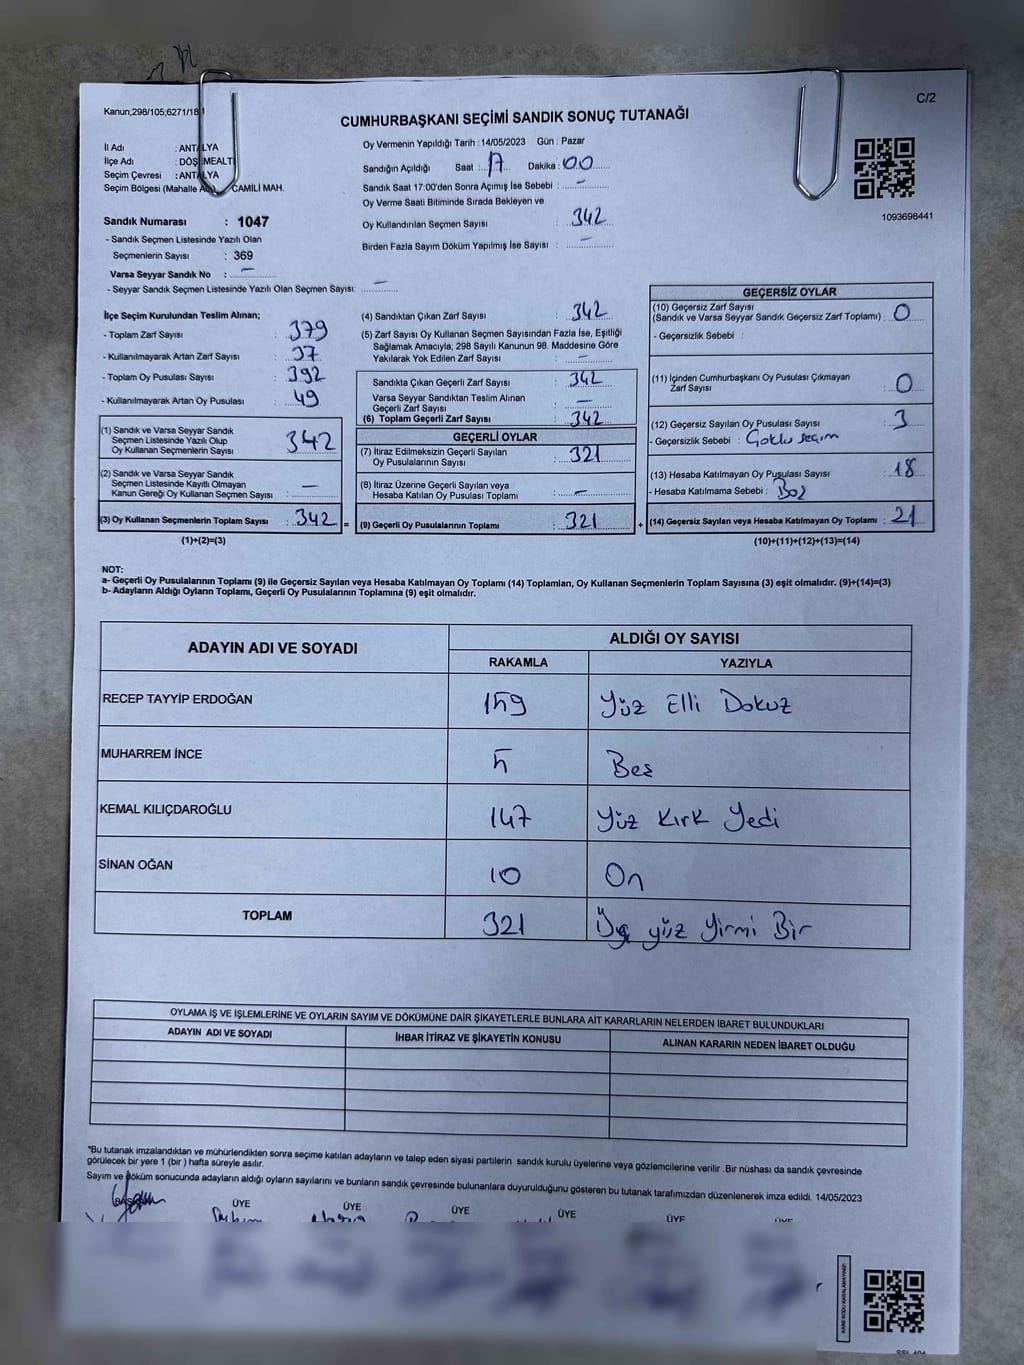 C/2
Kanun;298/105;6271/18
CUMHURBAŞKANI SEÇİMİ SANDIK SONUÇ TUTANAĞI
İl Adı : ANTALYA
İlçe Adı : DÖŞEMEALTI
Seçim Çevresi : ANTALYA
Seçim Bölgesi (Mahalle CAMİLİ MAH.
Sandık Numarası : 1047
- Sandık Seçmen Listesinde Yazılı Olan
Seçmenlerin Sayısı : 369
Varsa Seyyar Sandık No : —
- Seyyar Sandık Seçmen Listesinde Yazılı Olan Seçmen Sayısı: —
Oy Vermenin Yapıldığı Tarih : 14/05/2023 Gün : Pazar
Sandığın Açıldığı Saat : 17 Dakika : 00
Sandık Saat 17:00'den Sonra Açımış İse Sebebi : —
Oy Verme Saati Bitiminde Sırada Bekleyen ve
Oy Kullandırılan Seçmen Sayısı : 342
Birden Fazla Sayım Döküm Yapılmış İse Sayısı : —
1093698441
İlçe Seçim Kurulundan Teslim Alınan;
- Toplam Zarf Sayısı : 379
- Kullanılmayarak Artan Zarf Sayısı : 37
- Toplam Oy Pusulası Sayısı : 392
- Kullanılmayarak Artan Oy Pusulası : 49
(1) Sandık ve Varsa Seyyar Sandık
Seçmen Listesinde Yazılı Olup
Oy Kullanan Seçmenlerin Sayısı : 342
(2) Sandık ve Varsa Seyyar Sandık
Seçmen Listesinde Kayıtlı Olmayan
Kanun Gereği Oy Kullanan Seçmen Sayısı : —
(3) Oy Kullanan Seçmenlerin Toplam Sayısı : 342 =
(1)+(2)=(3)
(4) Sandıktan Çıkan Zarf Sayısı : 342
(5) Zarf Sayısı Oy Kullanan Seçmen Sayısından Fazla İse, Eşitliği
Sağlamak Amacıyla, 298 Sayılı Kanunun 98. Maddesine Göre
Yakılarak Yok Edilen Zarf Sayısı : —
Sandıkta Çıkan Geçerli Zarf Sayısı : 342
Varsa Seyyar Sandıktan Teslim Alınan
Geçerli Zarf Sayısı : —
(6) Toplam Geçerli Zarf Sayısı : 342
GEÇERLİ OYLAR
(7) İtiraz Edilmeksizin Geçerli Sayılan
Oy Pusulalarının Sayısı : 321
(8) İtiraz Üzerine Geçerli Sayılan veya
Hesaba Katılan Oy Pusulası Toplamı : —
(9) Geçerli Oy Pusulalarının Toplamı : 321 +
GEÇERSİZ OYLAR
(10) Geçersiz Zarf Sayısı
(Sandık ve Varsa Seyyar Sandık Geçersiz Zarf Toplamı) : 0
- Geçersizlik Sebebi
(11) İçinden Cumhurbaşkanı Oy Pusulası Çıkmayan
Zarf Sayısı : 0
(12) Geçersiz Sayılan Oy Pusulası Sayısı : 3
- Geçersizlik Sebebi : Çoklu seçim
(13) Hesaba Katılmayan Oy Pusulası Sayısı : 18
- Hesaba Katılmama Sebebi : Boş
(14) Geçersiz Sayılan veya Hesaba Katılmayan Oy Toplamı : 21
(10)+(11)+(12)+(13)=(14)
NOT:
a- Geçerli Oy Pusulalarının Toplamı (9) ile Geçersiz Sayılan veya Hesaba Katılmayan Oy Toplamı (14) Toplamları, Oy Kullanan Seçmenlerin Toplam Sayısına (3) eşit olmalıdır. (9)+(14)=(3)
b- Adayların Aldığı Oyların Toplamı, Geçerli Oy Pusulalarının Toplamına (9) eşit olmalıdır.
ADAYIN ADI VE SOYADI ALDIĞI OY SAYISI
RAKAMLA YAZIYLA
RECEP TAYYİP ERDOĞAN 159 Yüz Elli Dokuz
MUHARREM İNCE 5 Beş
KEMAL KILIÇDAROĞLU 147 Yüz Kırk Yedi
SİNAN OĞAN 10 On
TOPLAM 321 Üç yüz Yirmi Bir
OYLAMA İŞ VE İŞLEMLERİNE VE OYLARIN SAYIM VE DÖKÜMÜNE DAİR ŞİKAYETLERLE BUNLARA AİT KARARLARIN NELERDEN İBARET BULUNDUKLARI
ADAYIN ADI VE SOYADI İHBAR İTİRAZ VE ŞİKAYETİN KONUSU ALINAN KARARIN NEDEN İBARET OLDUĞU
*Bu tutanak imzalandıktan ve mühürlendikten sonra seçime katılan adayların ve talep eden siyasi partilerin sandık kurulu üyelerine veya gözlemcilerine verilir. Bir nüshası da sandık çevresinde
görülecek bir yere 1 (bir) hafta süreyle asılır.
Sayım ve döküm sonucunda adayların aldığı oyların sayılarını ve bunların sandık çevresinde bulunanlara duyurulduğunu gösteren bu tutanak tarafımızdan düzenlenerek imza edildi. 14/05/2023
BAŞKAN ÜYE ÜYE ÜYE ÜYE ÜYE ÜYE
KARE KODU KARALAMAYINIZ!